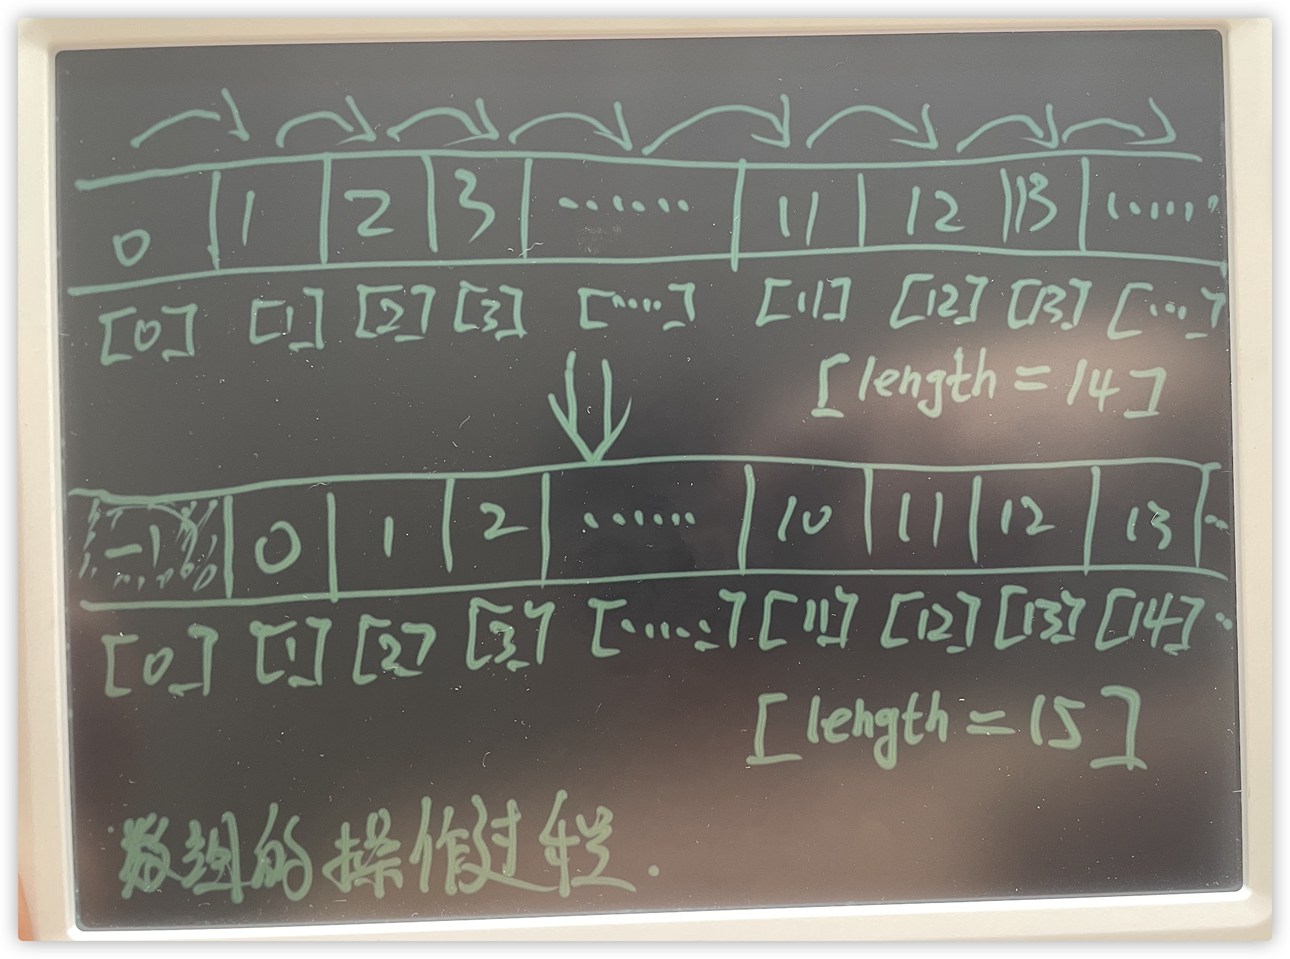 0 1 2 3 ······ 11 12 13 ······
[0] [1] [2] [3] [·····] [11] [12] [13] [···]
[length = 14]
-1 0 1 2 ······ 10 11 12 13 ··
[0] [1] [2] [3] [·····] [11] [12] [13] [14] ··
[length = 15]
数组的操作过程.